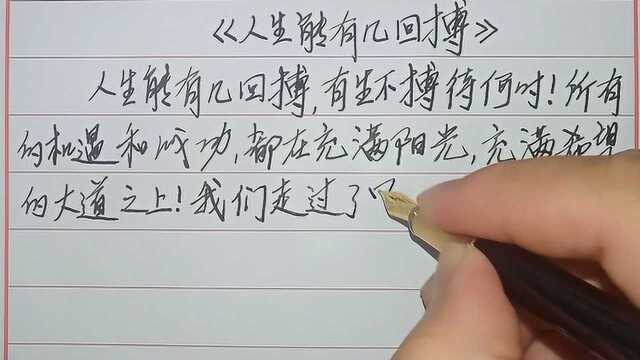 《人生能有几回搏》
人生能有几回搏,有生不搏待何时!所有
的机遇和成功,都在充满阳光,充满希望
的大道之上!我们走过了